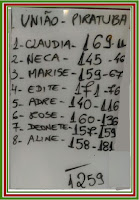 UNIÃO - PIRATUBA
1- CLAUDIA - 169-
2- NECA. - 145 -46
3- MARISE - 159-67
4- EDITE - 171-76
5- ADRE - 140-116
6- ROSE - 160-136
7- DEONETE- 157-159
8- ALINE - 158-181
1259